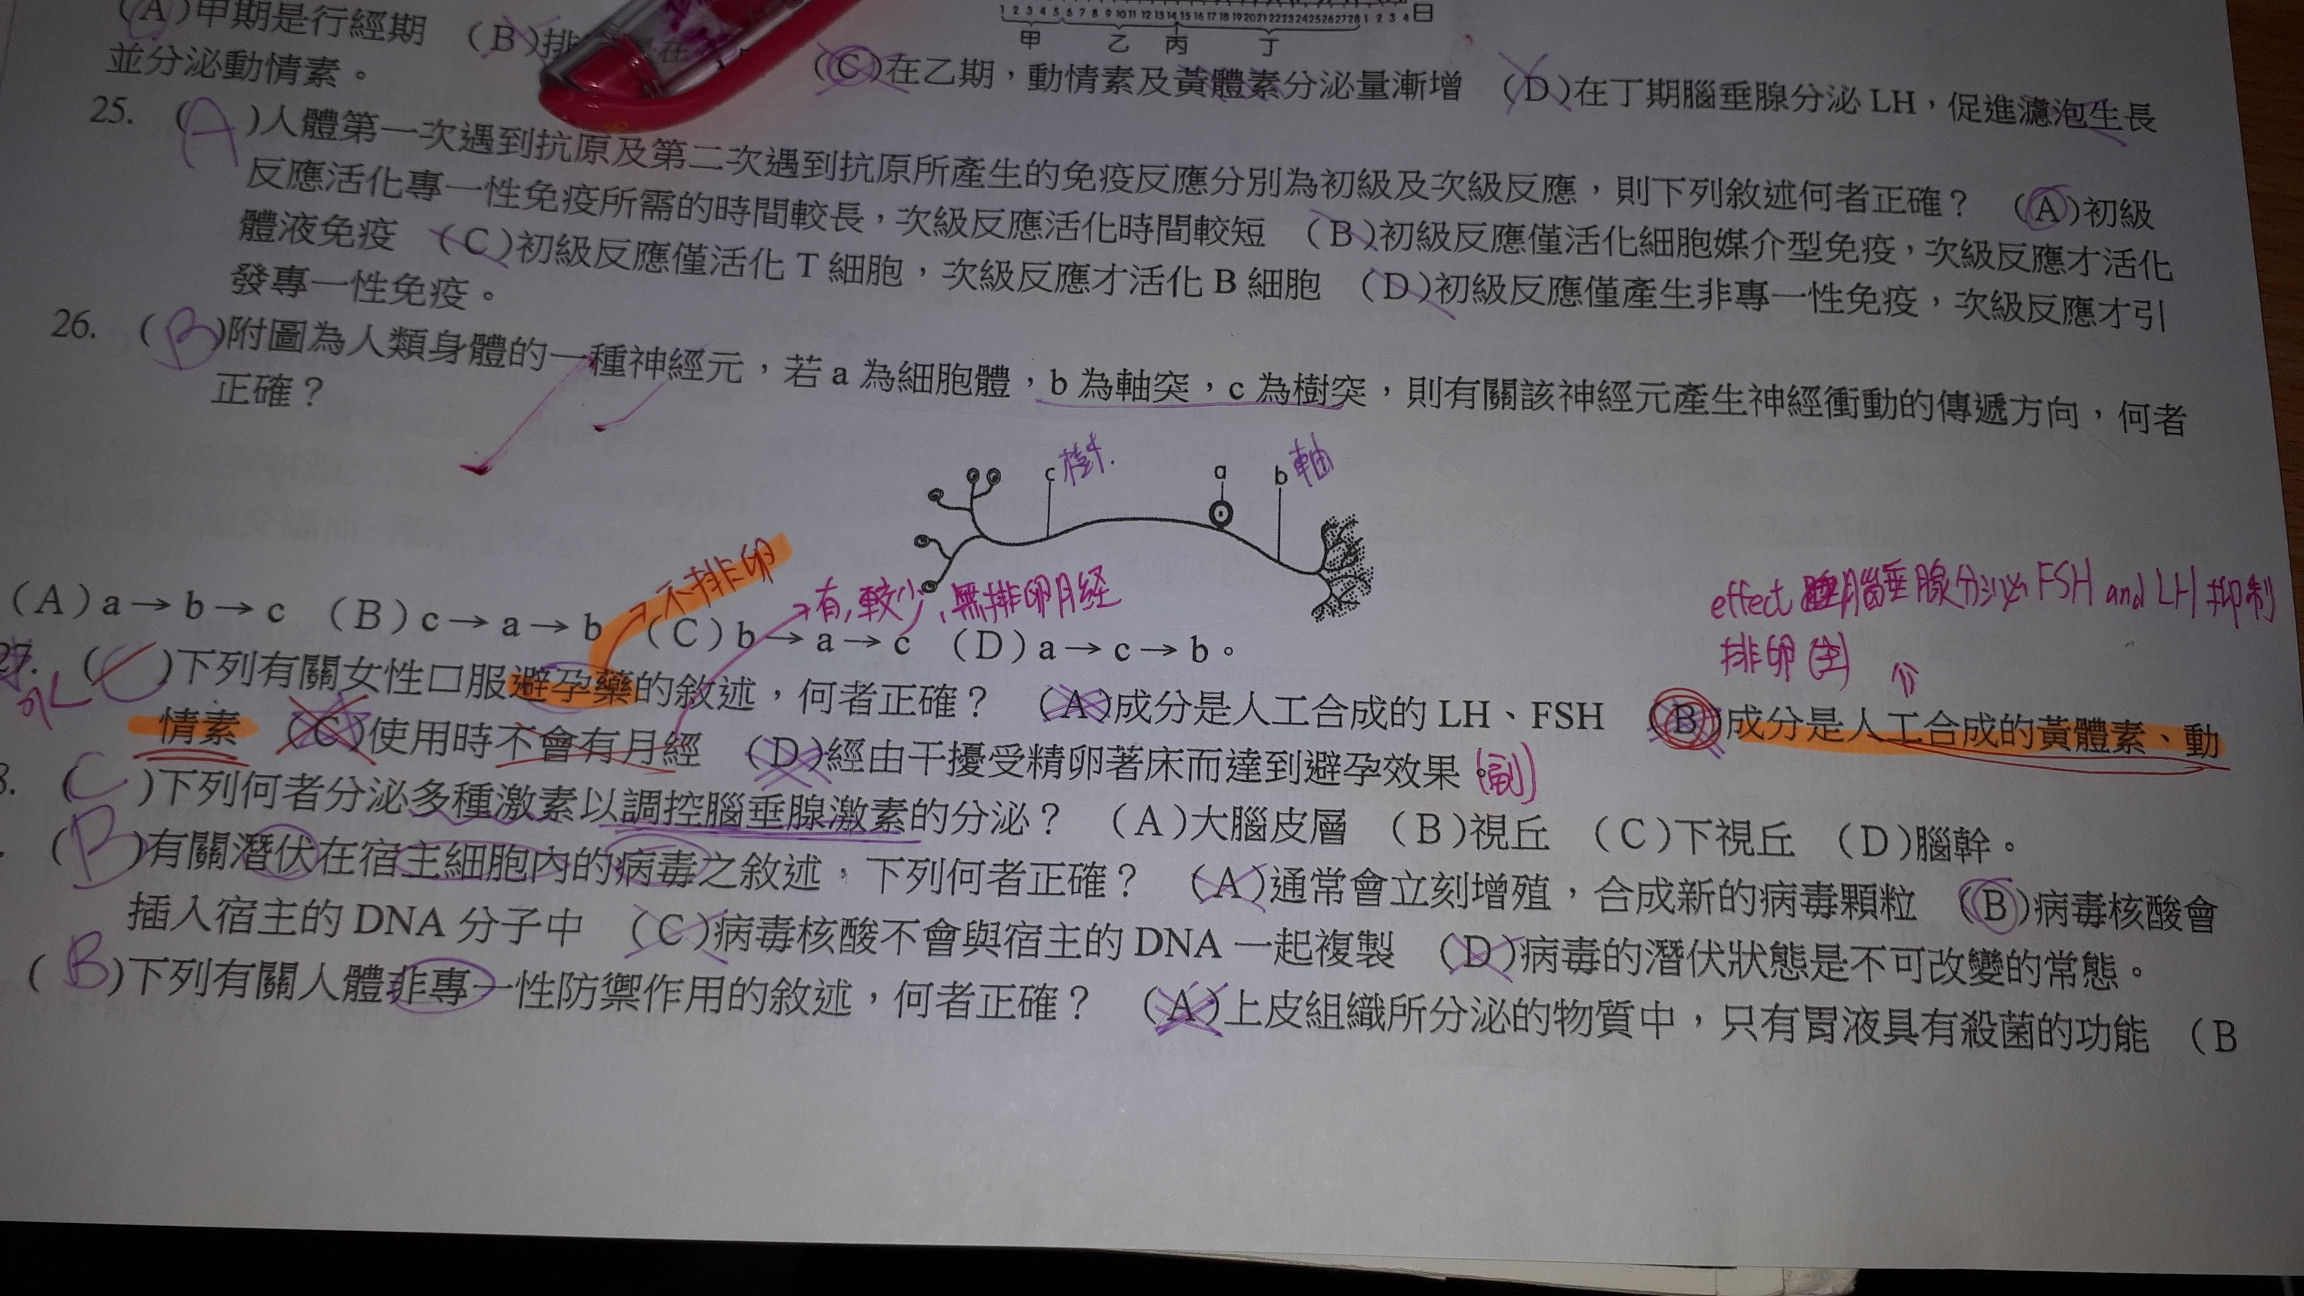 1 2 3 4 5 6 7 8 9 10 11 12 13 14 15 16 17 18 19 20 21 22 23 24 25 26 27 28 1 2 3 4 日
甲 乙 丙 丁
(A)甲期是行經期 (B)排 在 (C)在乙期，動情素及黃體素分泌量漸增 (D)在丁期腦垂腺分泌 LH，促進濾泡生長
並分泌動情素。
25. (A)人體第一次遇到抗原及第二次遇到抗原所產生的免疫反應分別為初級及次級反應，則下列敘述何者正確？ (A)初級
反應活化專一性免疫所需的時間較長，次級反應活化時間較短 (B)初級反應僅活化細胞媒介型免疫，次級反應才活化
體液免疫 (C)初級反應僅活化 T 細胞，次級反應才活化 B 細胞 (D)初級反應僅產生非專一性免疫，次級反應才引
發專一性免疫。
26. (B)附圖為人類身體的一種神經元，若 a 為細胞體，b 為軸突，c 為樹突，則有關該神經元產生神經衝動的傳遞方向，何者
正確？
c 樹. a b 軸
不排卵
有,較少,無排卵月経
effect 腦垂腺分泌 FSH and LH 抑制
排卵(主)
(A)a→b→c (B)c→a→b (C)b→a→c (D)a→c→b。
27. (C)下列有關女性口服避孕藥的敘述，何者正確？ (A)成分是人工合成的 LH、FSH (B)成分是人工合成的黃體素、動
情素 (C)使用時不會有月經 (D)經由干擾受精卵著床而達到避孕效果。(副)
8. (C)下列何者分泌多種激素以調控腦垂腺激素的分泌？ (A)大腦皮層 (B)視丘 (C)下視丘 (D)腦幹。
(B)有關潛伏在宿主細胞內的病毒之敘述，下列何者正確？ (A)通常會立刻增殖，合成新的病毒顆粒 (B)病毒核酸會
插入宿主的 DNA 分子中 (C)病毒核酸不會與宿主的 DNA 一起複製 (D)病毒的潛伏狀態是不可改變的常態。
(B)下列有關人體非專一性防禦作用的敘述，何者正確？ (A)上皮組織所分泌的物質中，只有胃液具有殺菌的功能 (B